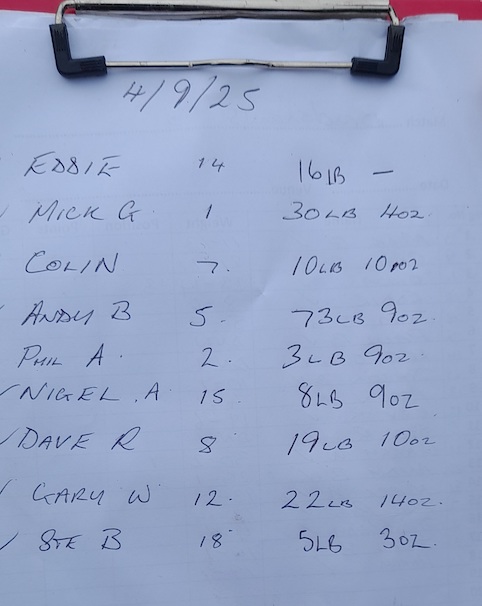 4/9/25
EDDIE 14 16LB —
✓ MICK G 1 30LB 4OZ.
COLIN 7. 10LB 10OZ
✓ ANDY B 5. 73LB 9OZ.
PHIL A. 2. 3LB 9OZ.
✓ NIGEL. A 15. 8LB 9OZ
✓ DAVE R 8 19LB 10OZ
✓ GARY W 12. 22LB 14OZ.
✓ STE B 18 5LB 3OZ.